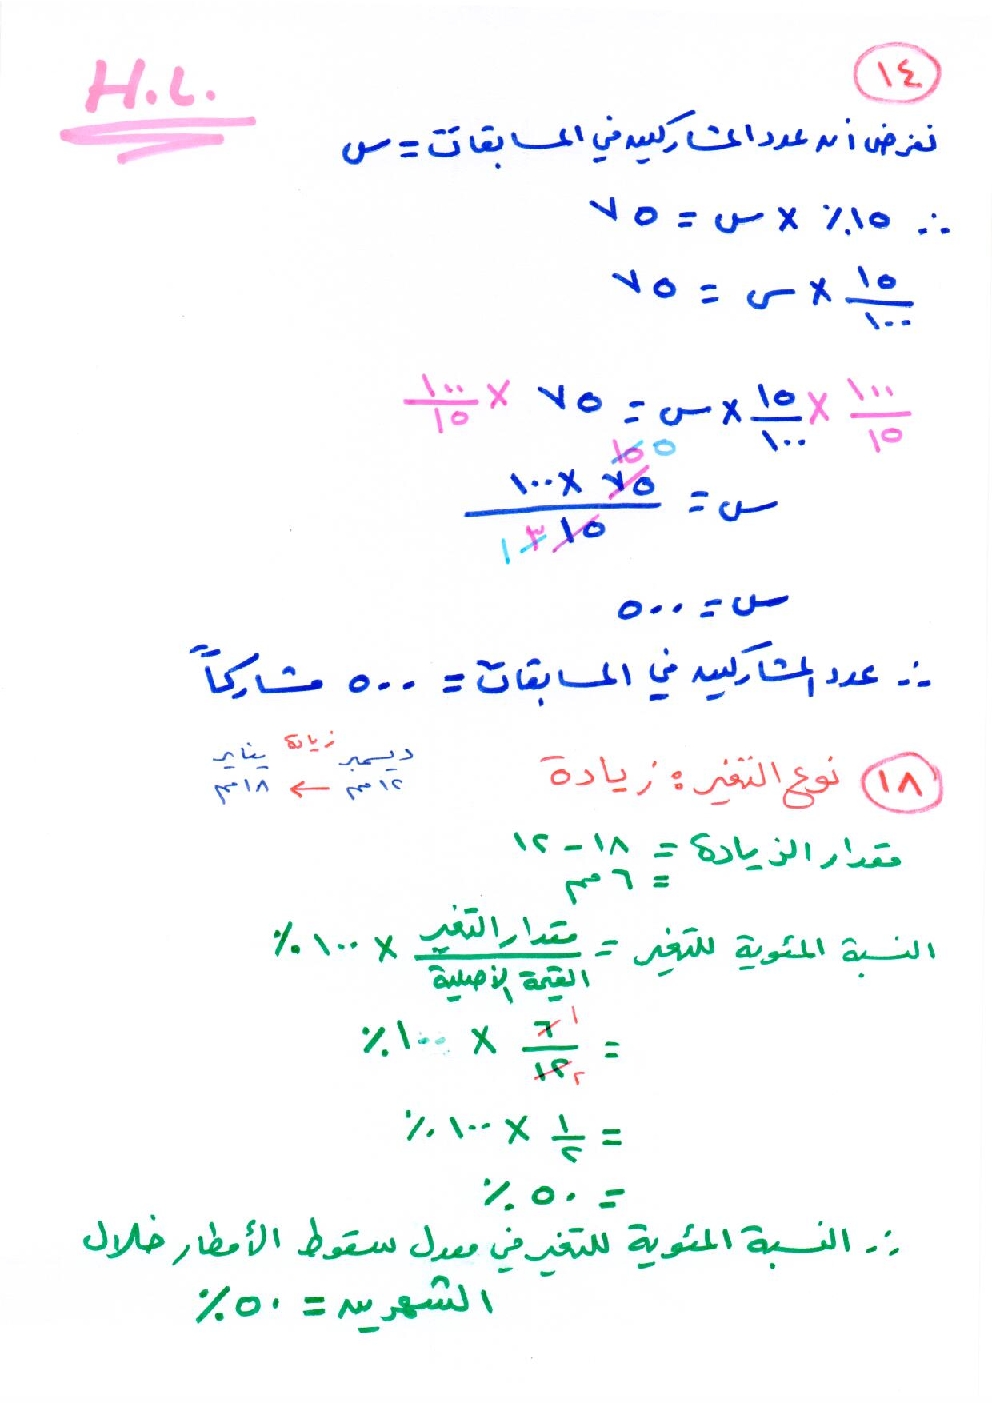 H.L.
١٤
نفرض أن عدد المشاركين في المسابقات = س
∴ ١٥٪ × س = ٧٥
١٥/١٠٠ × س = ٧٥
١٠٠/١٥ × ١٥/١٠٠ × س = ٧٥ × ١٠٠/١٥
١٥ ٥
س = ٧٥ × ١٠٠ / ١٥
٣ ١
س = ٥٠٠
∴ عدد المشاركين في المسابقات = ٥٠٠ مشاركاً
١٨ نوع التغير : زيادة
ديسمبر زيادة يناير
١٢مم ← ١٨مم
مقدار الزيادة = ١٨ - ١٢
= ٦ مم
النسبة المئوية للتغير = مقدار التغير / القيمة الأصلية × ١٠٠٪
= ٦ ١ / ١٢ ٢ × ١٠٠٪
= ١/٢ × ١٠٠٪
= ٥٠٪
∴ النسبة المئوية للتغير في معدل سقوط الأمطار خلال
الشهرين = ٥٠٪